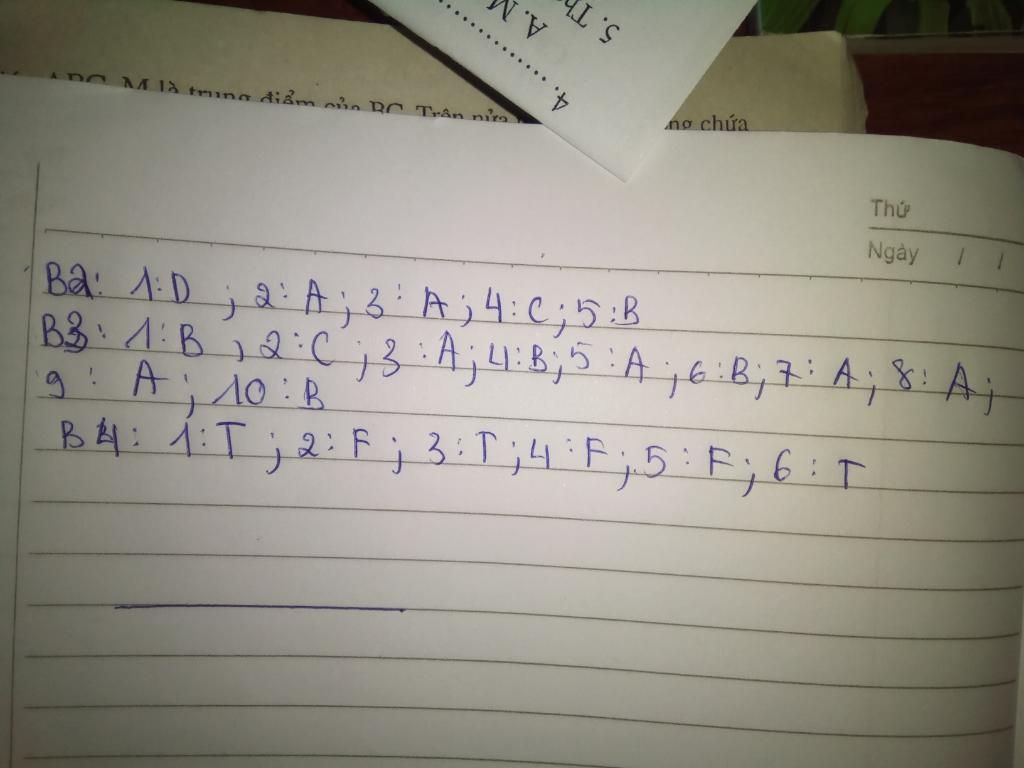 4.
A. M
5. Th
ABC, M là trung điểm của BC. Trên nửa
ng chứa
Thứ
Ngày / /
B2: 1:D ; 2: A; 3: A; 4:C; 5:B
B3: 1:B , 2:C ; 3:A; 4:B; 5:A; 6:B; 7: A; 8: A;
9: A; 10:B
B4: 1:T ; 2:F; 3:T; 4:F; 5:F; 6:T